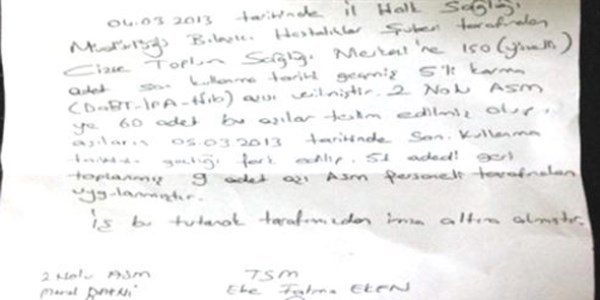 04.03.2013 tarihinde il Halk Sağlığı
Müdürlüğü Bulaşıcı Hastalıklar Şubesi tarafından
Cizre Toplum Sağlığı Merkezi'ne 150 (yüzelli)
adet son kullanma tarihi geçmiş 5'li karma
(DaBT-IPA-Hib) aşısı verilmiştir. 2 Nolu ASM
ye 60 adet bu aşılar teslim edilmiş olup,
aşıların 05.03.2013 tarihinde Son Kullanma
tarihi geçtiği fark edilip, 51 adedi geri
toplanmış 9 adet aşı Asm personeli tarafından
uygulanmıştır.
İş bu tutanak tarafımızdan imza altına alınmıştır.
2 Nolu ASM TSM
Ebe Fatma EKEN